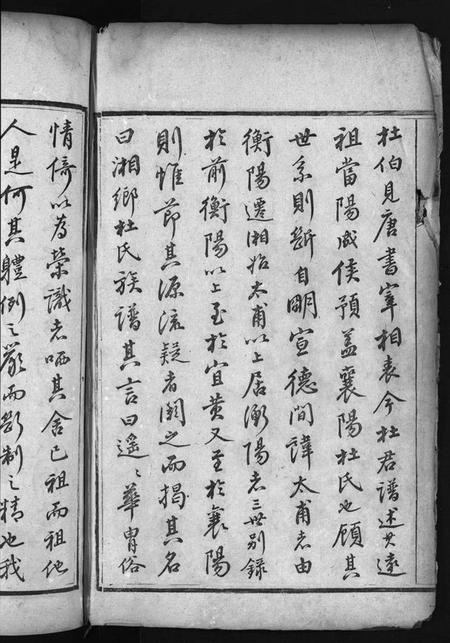 杜伯見唐書宰相表今杜君譜述其遠
祖當陽成侯預蓋襄陽杜氏也顧其
世系則斷自明宣德間諱太甫者由
衡陽遷湘始太甫以上居衡陽者三世別錄
於前衡陽以上至於宜黃又至於襄陽
則惟節其源流疑者闕之而揭其名
曰湘鄉杜氏族譜其言曰遙遙華冑俗
情倚以為榮識者哂其舍己祖而祖他
人是何其體例之嚴而斷制之精也我